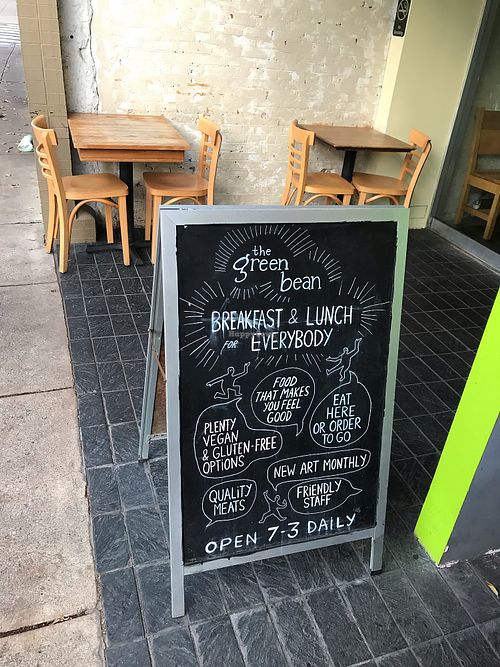 the
green
bean
BREAKFAST & LUNCH
FOR EVERYBODY
FOOD
THAT MAKES
YOU FEEL
GOOD
EAT
HERE
OR ORDER
TO GO
PLENTY
VEGAN
& GLUTEN-FREE
OPTIONS
NEW ART MONTHLY
QUALITY
MEATS
FRIENDLY
STAFF
OPEN 7-3 DAILY